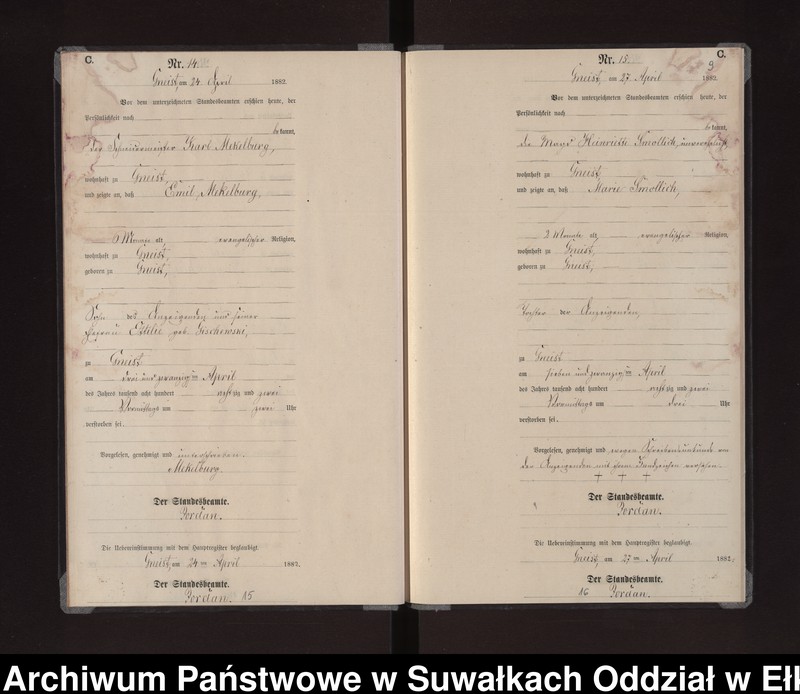 C.
Nr. 14.
Gneist, am 24. April 1882.
Vor dem unterzeichneten Standesbeamten erschien heute, der
Persönlichkeit nach
bekannt,
der Schneidermeister Karl Mekelburg,
wohnhaft zu Gneist,
und zeigte an, daß Emil, Mekelburg,
6 Monate alt, evangelischer Religion,
wohnhaft zu Gneist,
geboren zu Gneist,
Sohn des Anzeigenden und seiner
Ehefrau Ottilie, geb.
zu Gneist
am drei und zwanzigsten April
des Jahres tausend acht hundert achtzig und zwei
Vormittags um zwei Uhr
verstorben sei.
Vorgelesen, genehmigt und unterschrieben.
Mekelburg.
Der Standesbeamte.
Jordan.
Die Uebereinstimmung mit dem Hauptregister beglaubigt.
Gneist, am 24ten April 1882.
Der Standesbeamte.
Jordan. 15
C.
Nr. 15.
9
Gneist, am 27 April 1882.
Vor dem unterzeichneten Standesbeamten erschien heute, der
Persönlichkeit nach
bekannt,
die Magd Heinriette Smollich, unverehelicht,
wohnhaft zu Gneist,
und zeigte an, daß Marie Smollich,
2 Monate alt, evangelischer Religion,
wohnhaft zu Gneist,
geboren zu Gneist,
Tochter der Anzeigenden,
zu Gneist
am sieben und zwanzigsten April
des Jahres tausend acht hundert achtzig und zwei
Vormittags um drei Uhr
verstorben sei.
Vorgelesen, genehmigt und wegen Schreibensunkunde von
der Anzeigenden mit ihrem Handzeichen versehen.
+ + +
Der Standesbeamte.
Jordan.
Die Uebereinstimmung mit dem Hauptregister beglaubigt.
Gneist, am 27ten April 1882.
Der Standesbeamte.
16 Jordan.
Archiwum Państwowe w Suwałkach Oddział w Ełk